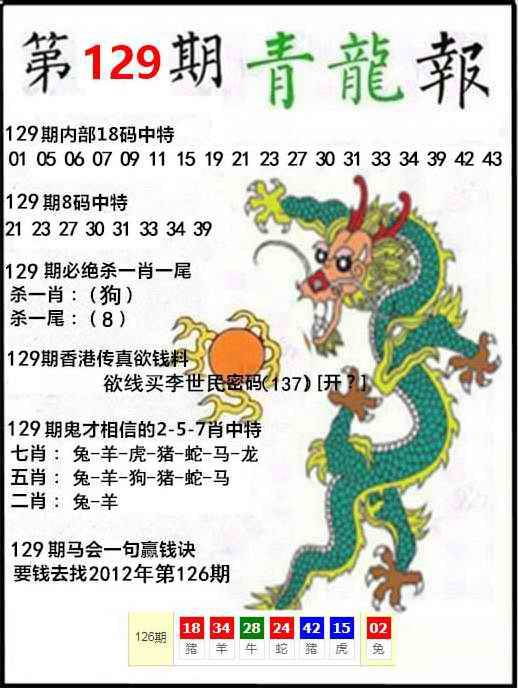 第129期青龍報
129期内部18码中特
01 05 06 07 09 11 15 19 21 23 27 30 31 33 34 39 42 43
129期8码中特
21 23 27 30 31 33 34 39
129 期必绝杀一肖一尾
杀一肖：（狗）
杀一尾：（8）
129期香港传真欲钱料
欲线买李世民密码(137) [开？]
129期鬼才相信的2-5-7肖中特
七肖： 兔-羊-虎-猪-蛇-马-龙
五肖： 兔-羊-狗-猪-蛇-马
二肖： 兔-羊
129期马会一句赢钱诀
要钱去找2012年第126期
126期 18 34 28 24 42 15 02
猪 羊 牛 蛇 猪 虎 兔